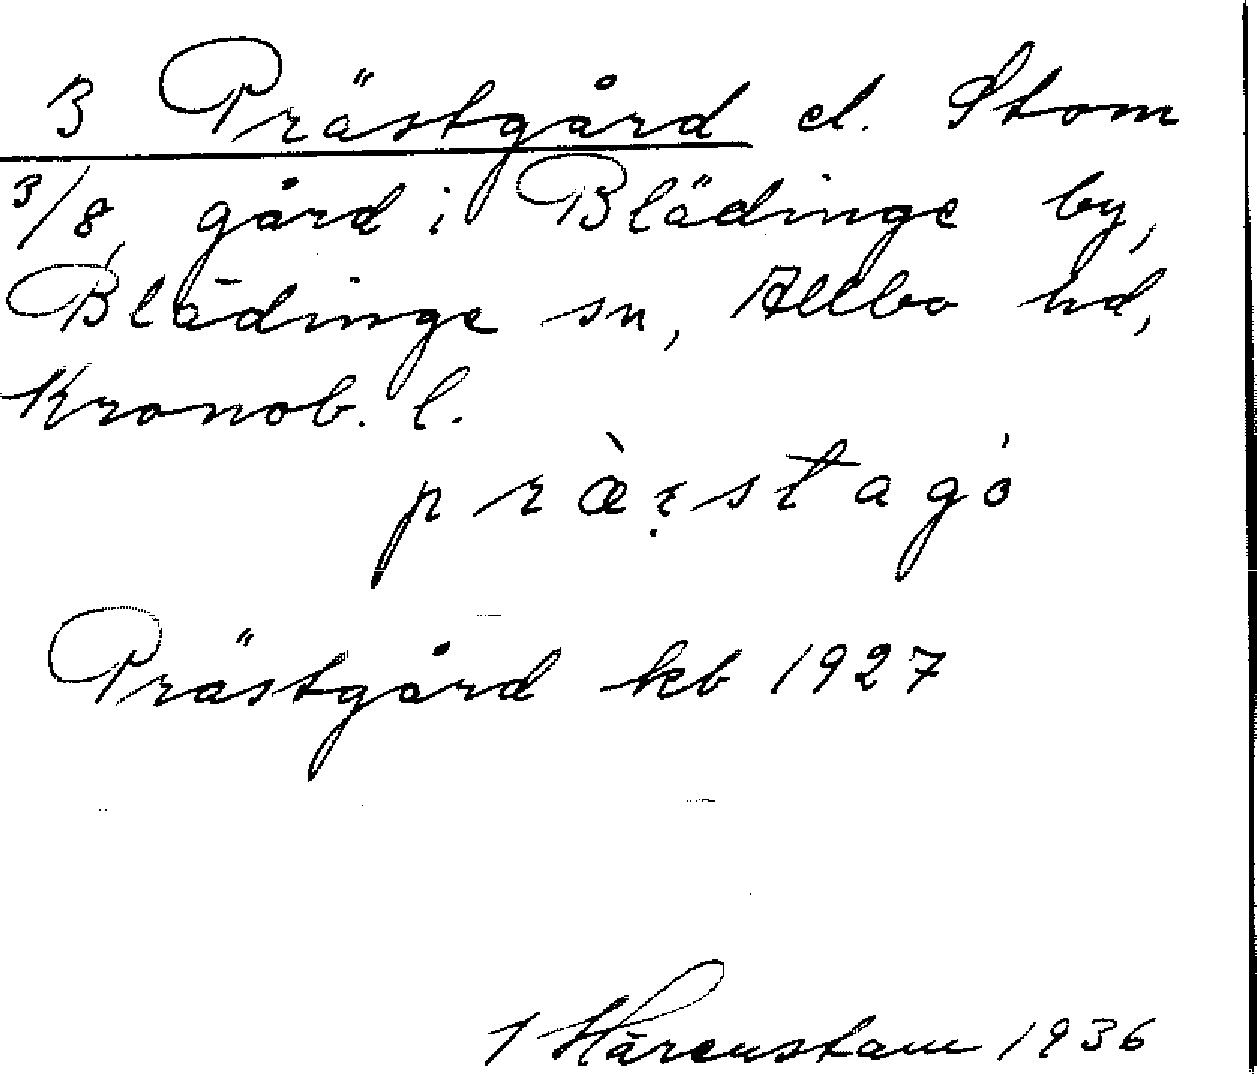 3 Prästgård el. Stom
3/8, gård i Blädinge by,
Blädinge sn, Allbo hd,
Kronob. l.
Prästgård kb 1927
Härenstam 1936